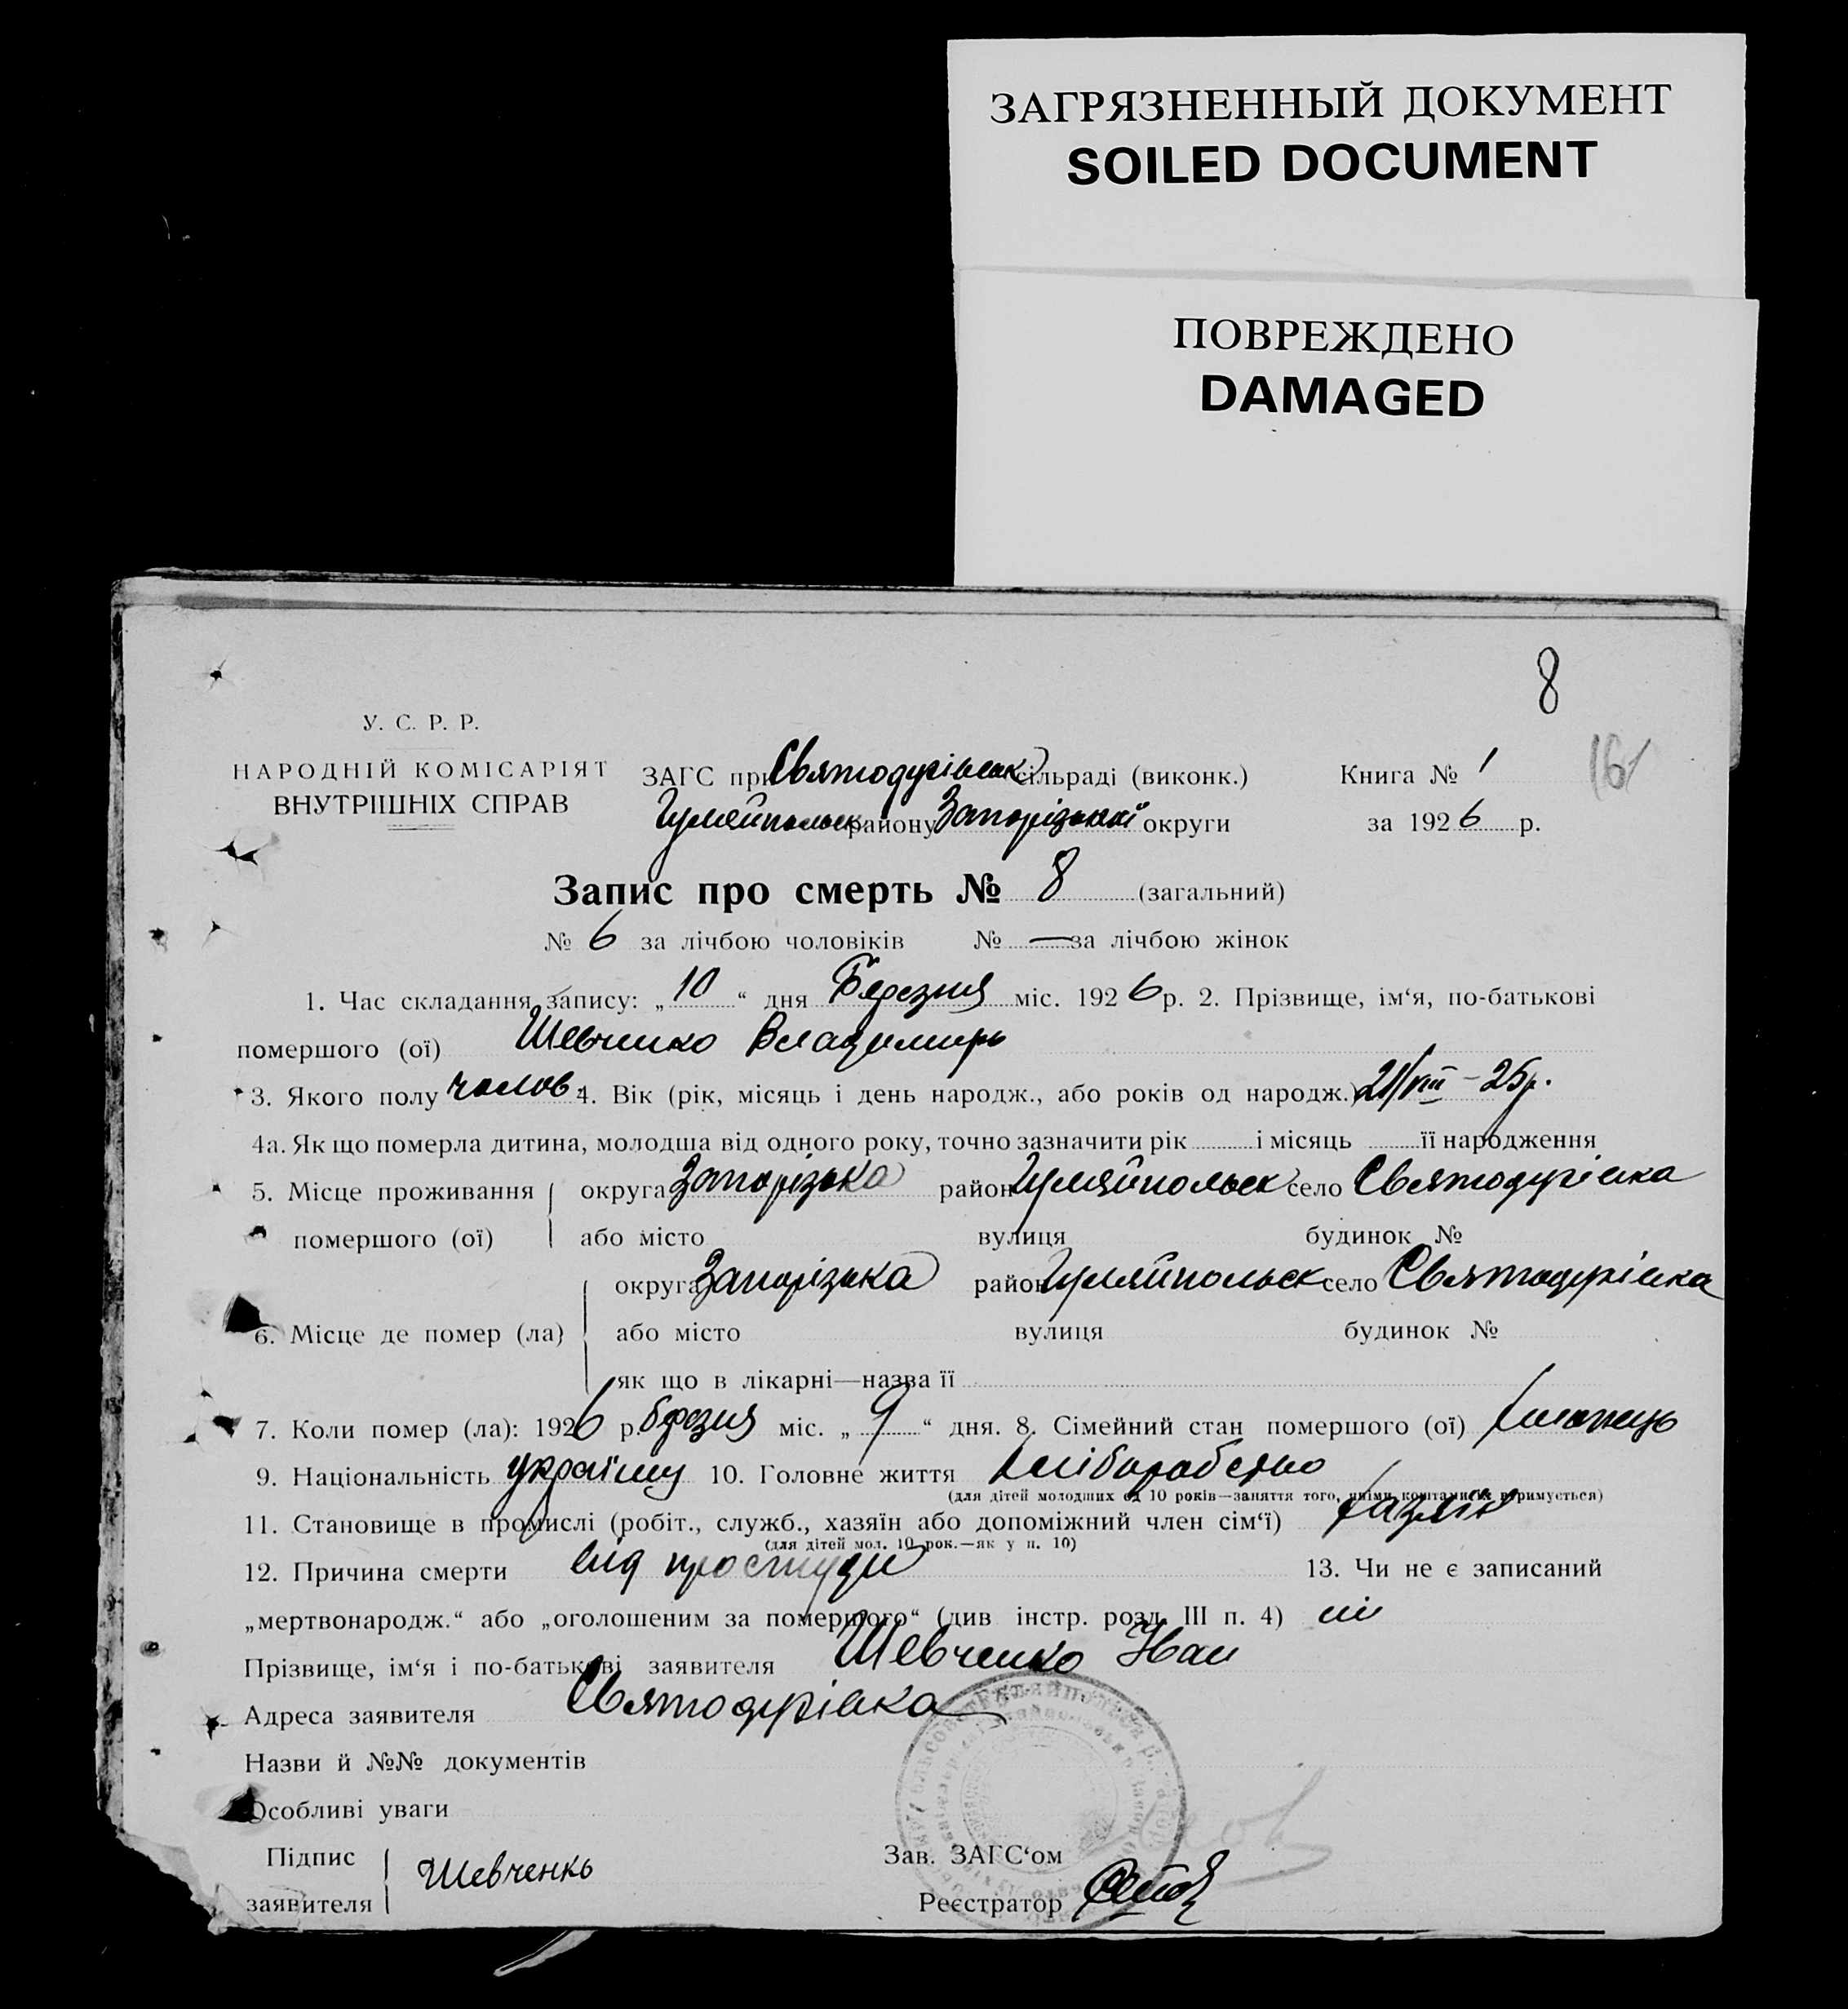 ЗАГРЯЗНЕННЫЙ ДОКУМЕНТ
SOILED DOCUMENT
ПОВРЕЖДЕНО
DAMAGED
8
161
У. С. Р. Р.
НАРОДНІЙ КОМІСАРІЯТ
ВНУТРІШНІХ СПРАВ
ЗАГС при Святодухівськ сільраді (виконк.) Книга № 1
Гуляйпольск району Запорізької округи за 1926 р.
Запис про смерть № 8 (загальний)
№ 6 за лічбою чоловіків № — за лічбою жінок
1. Час складання запису: „10“ дня Березня міс. 1926 р. 2. Прізвище, ім‘я, по-батькові
помершого (ої) Шевченко Владимирь
3. Якого полу чолов. 4. Вік (рік, місяць і день народж., або років од народж.) 21/VIII – 25р.
4а. Як що померла дитина, молодша від одного року, точно зазначити рік і місяць її народження
5. Місце проживання помершого (ої) округа Запорізька район Гуляйпольск село Святодухівка
або місто вулиця будинок №
6. Місце де помер (ла) округа Запорізька район Гуляйпольск село Святодухівка
або місто вулиця будинок №
як що в лікарні—назва її
7. Коли помер (ла): 1926 р. березня міс. „9“ дня. 8. Сімейний стан помершого (ої) хлопець
9. Національність 10. Головне життя хліборобство
(для дітей молодших од 10 років—заняття того, чиїми коштами їх втримується)
11. Становище в промислі (робіт., служб., хазяїн або допоміжний член сім‘ї) хазяїн
(для дітей мол. 10 рок.—як у п. 10)
12. Причина смерти від простуди 13. Чи не є записаний
„мертвонародж.“ або „оголошеним за помершого“ (див інстр. розд. III п. 4) ні
Прізвище, ім‘я і по-батькові заявителя Шевченко Иван
Адреса заявителя Святодухівка
Назви й №№ документів
Особливі уваги
Підпис заявителя Шевченко
Зав. ЗАГС‘ом
Реєстратор